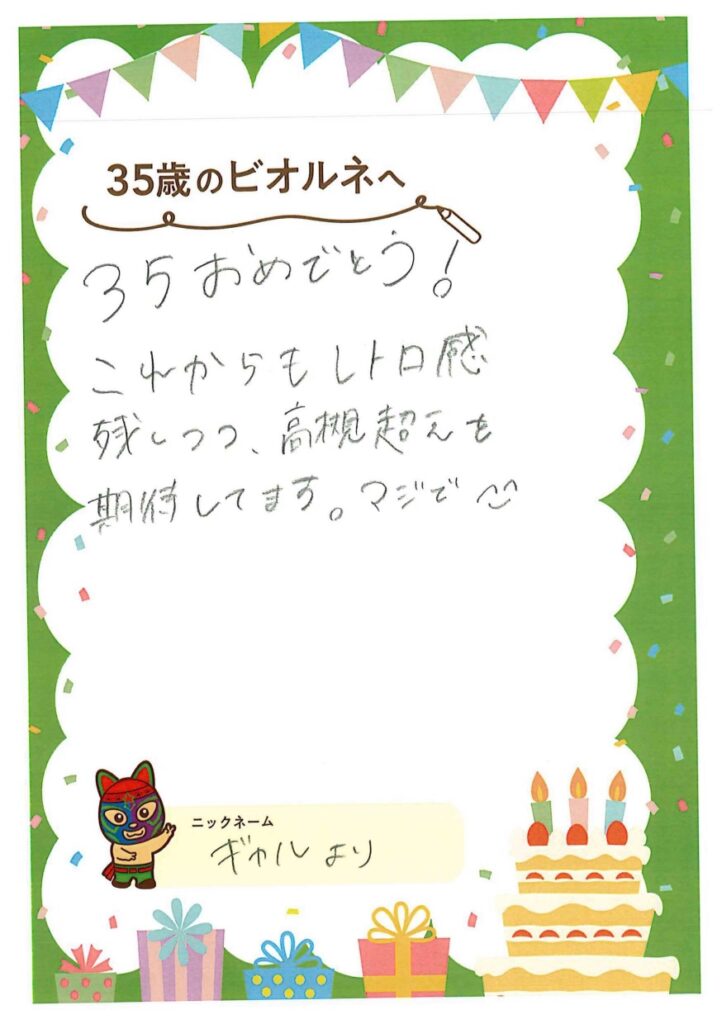 35歳のビオルネへ
35おめでとう!
これからもレトロ感
残しつつ、高槻超えを
期待してます。マジで
ニックネーム
ギャルより